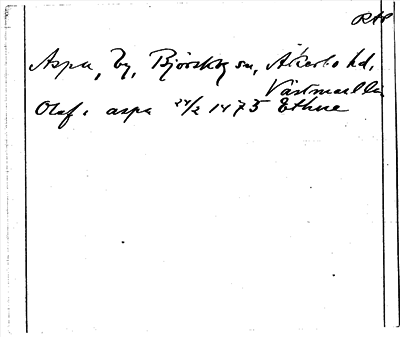 RAP
Aspa, by, Björskog sn, Åkerbo hd,
Västmanl. län
Olaf i aspa 24/2 1475 Ethne